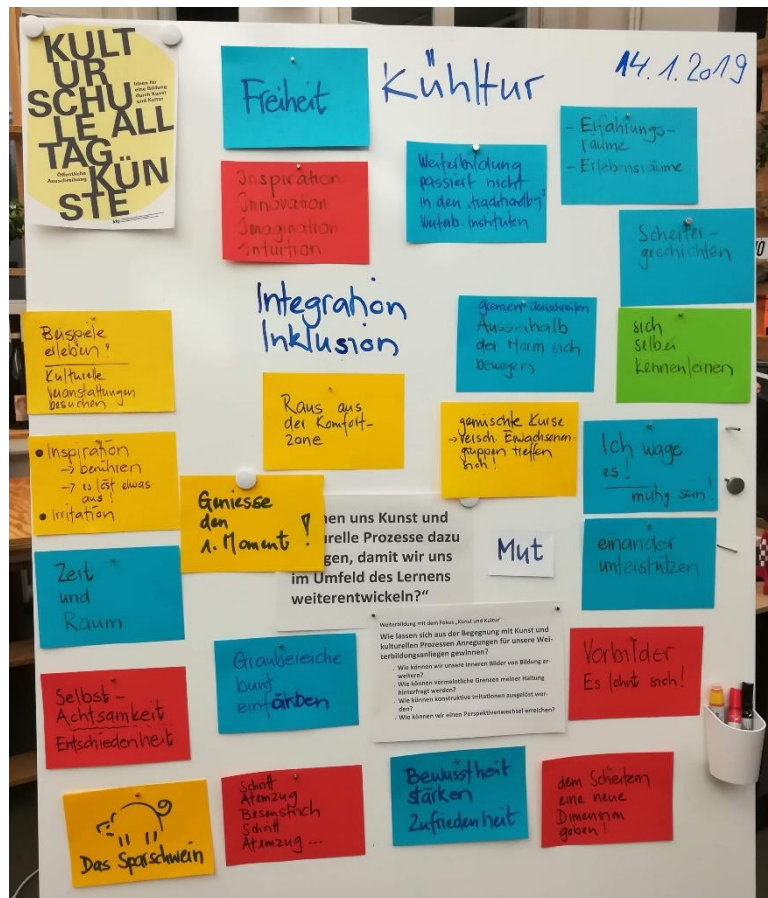 KULT
UR
SCHU
LE ALL
TAG
KÜN
STE
Ideen für
eine Bildung
durch Kunst
und Kultur
Öffentliche
Ausschreibung
Freiheit
Kühltur
14.1.2019
Inspiration
Innovation
Imagination
Intuition
Weiterbildung
passiert nicht
in den „traditionellen"
Weiterb. Instituten
- Erfahrungs-
räume
- Erlebensräume
Scheiter-
geschichten
Integration
Inklusion
Grenzen überschreiten
Ausserhalb
der Norm sich
bewegen
sich
selber
kennenlernen
Beispiele
erleben!
Kulturelle
Veranstaltungen
besuchen
Raus aus
der Komfort-
zone
gemischte Kurse
→ versch. Erwachsenen-
gruppen treffen
sich!
Ich wage
es!
mutig sein!
• Inspiration
→ berühren
→ es löst etwas
aus!
• Irritation
Geniesse
den
1. Moment!
en uns Kunst und
urelle Prozesse dazu
gen, damit wir uns
im Umfeld des Lernens
weiterentwickeln?“
Mut
einander
unterstützen
Zeit
und
Raum
Weiterbildung mit dem Fokus „Kunst und Kultur“
Wie lassen sich aus der Begegnung mit Kunst und
kulturellen Prozessen Anregungen für unsere Wei-
terbildungsanliegen gewinnen?
. Wie können wir unsere inneren Bilder von Bildung er-
weitern?
. Wie können vermeintliche Grenzen meiner Haltung
hinterfragt werden?
. Wie können konstruktive Irritationen ausgelöst wer-
den?
. Wie können wir einen Perspektivenwechsel erreichen?
Graubereiche
bunt
einfärben
Vorbilder
Es lohnt sich!
Selbst-
Achtsamkeit
Entschiedenheit
Das Sparschwein
Schritt
Atemzug
Besenstrich
Schritt
Atemzug...
Bewusstheit
stärken
Zufriedenheit
dem Scheitern
eine neue
Dimension
geben!